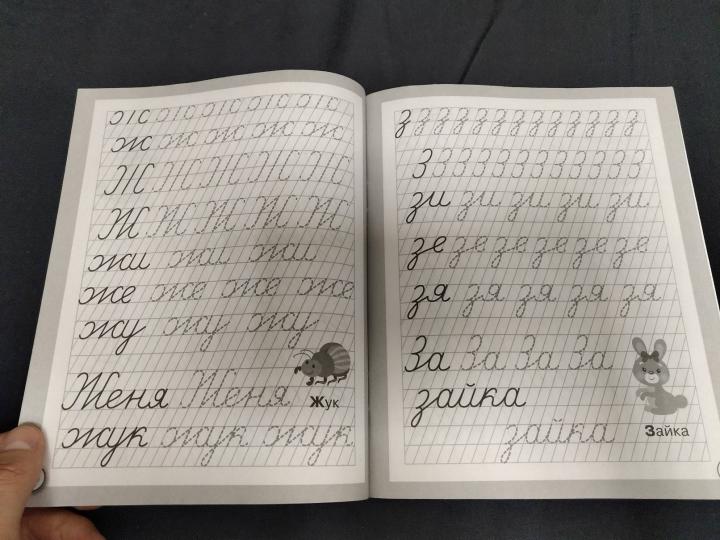 ж ж ж ж ж
ж ж ж ж ж
Ж Ж Ж Ж Ж Ж
Ж Ж Ж Ж Ж Ж
жи жи жи
же же же же
жу жу жу
Женя Женя
Жук
жук жук жук
з з з з з з з з з з з з з
З З З З З З З З З З З З
зи зи зи зи зи
зе зе зе зе зе зе
зя зя зя зя зя
За За За За
зайка
Зайка
зайка